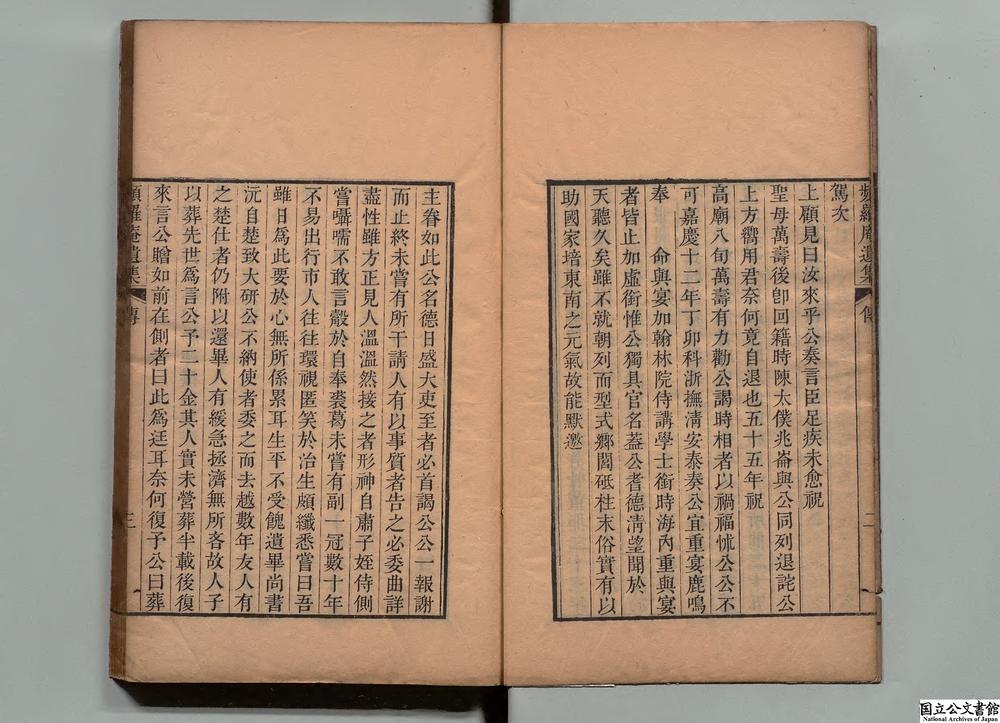 頻羅庵遺集 傳 二
駕次
上顧見曰汝來乎公奏言臣足疾未愈祝
聖母萬壽後卽回籍時陳太僕兆崙與公同列退詫公
上方嚮用君奈何竟自退也五十五年祝
高廟八旬萬壽有力勸公謁時相者以禍福怵公公不
可嘉慶十二年丁卯科浙撫淸安泰奏公宜重宴鹿鳴
奉 命與宴加翰林院侍講學士銜時海內重與宴
者皆止加虛銜惟公獨具官名蓋公耆德淸望聞於
天聽久矣雖不就朝列而型式鄕閭砥柱末俗實有以
助國家培東南之元氣故能默邀
主眷如此公名德日盛大吏至者必首謁公公一報謝
而止終未嘗有所干請人有以事質者告之必委曲詳
盡性雖方正見人溫溫然接之者形神自肅子姪侍側
嘗囁嚅不敢言縠於自奉裘葛未嘗有副一冠數十年
不易出行市人往往環視匿笑於治生頗纖悉嘗曰吾
雖日爲此要於心無所係累耳生平不受餽遺畢尚書
沅自楚致大研公不納使者委之而去越數年友人有
之楚仕者仍附以還畢人有緩急拯濟無所吝故人子
以葬先世爲言公予二十金其人實未營葬半載後復
來言公贈如前在側者曰此為迋耳奈何復予公曰葬
頻羅庵遺集 傳 三
国立公文書館
National Archives of Japan